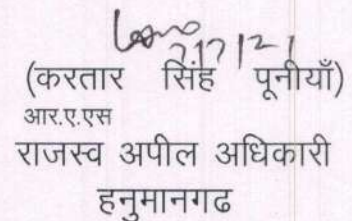 (करतार सिंह पूनीयाँ)
आर.ए.एस
राजस्व अपील अधिकारी
हनुमानगढ